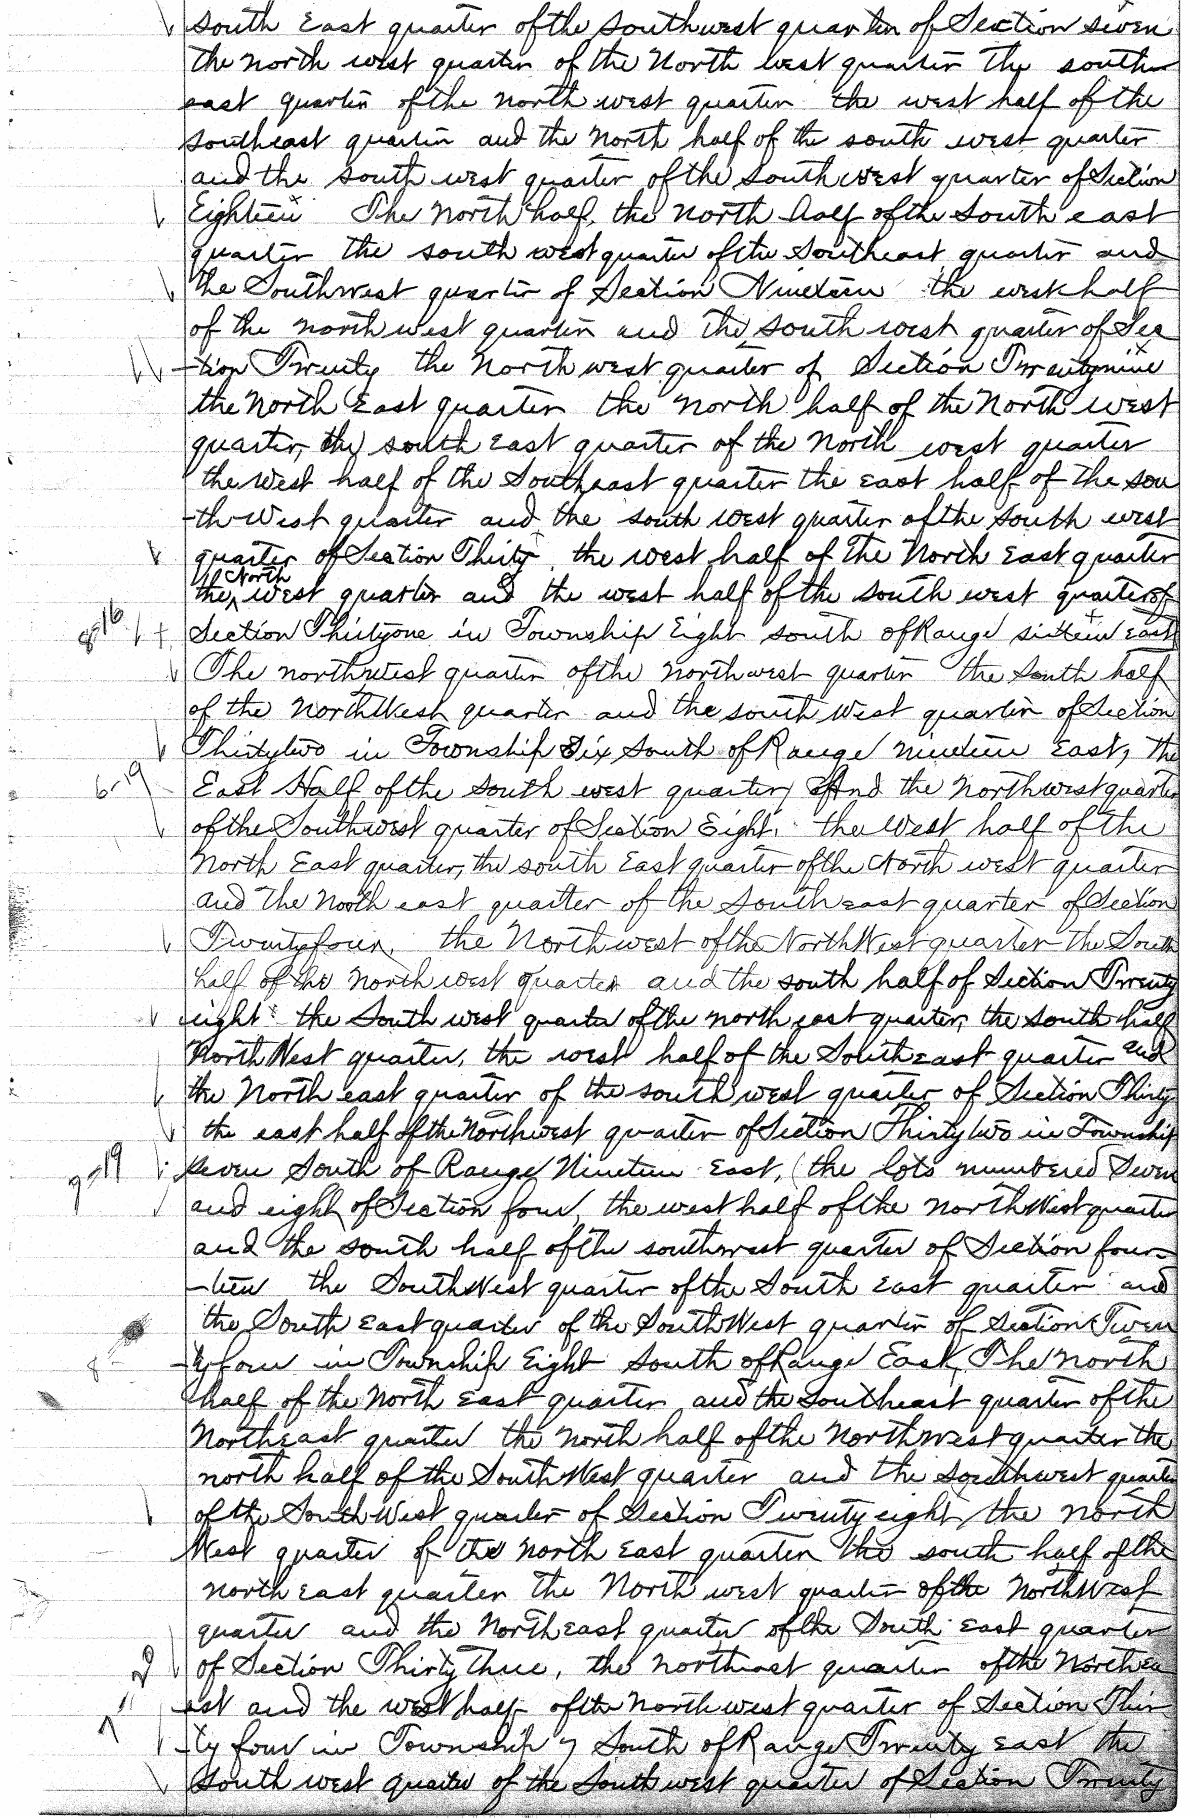 south East quarter of the southwest quarter of Section seven
the north west quarter of the North west quarter the south
east quarter of the north west quarter the west half of the
southeast quarter and the North half of the south west quarter
and the south west quarter of the south west quarter of Section
Eighteen The North half, the north half of the South east
quarter the south west quarter of the Southeast quarter and
the Southwest quarter of Section Nineteen the west half
of the north west quarter and the south west quarter of Sec
-tion Twenty the North west quarter of Section Twentynine
the North East quarter the north half of the North west
quarter, the south east quarter of the North west quarter
the west half of the Southeast quarter the east half of the sou
-th West quarter and the south west quarter of the south west
quarter of Section Thirty, the west half of the North East quarter
the North west quarter and the west half of the south west quarter of
8-16 Section Thirtyone in Township Eight south of Range sixteen East
The northwest quarter of the northwest quarter the South half
of the NorthWest quarter and the south West quarter of Section
Thirtytwo in Township Six South of Range nineteen East, the
6-19 East Half of the south west quarter, And the Northwest quarter
of the Southwest quarter of Section Eight, the West half of the
North East quarter, the south East quarter of the North west quarter
and the North east quarter of the South east quarter of Section
Twentyfour, the Northwest of the NorthWest quarter the South
half of the North west quarter and the south half of Section Twenty
eight the South west quarter of the north east quarter, the south half
NorthWest quarter, the west half of the Southeast quarter and
the North east quarter of the south west quarter of Section Thirty
the east half of the Northwest quarter of Section Thirty two in Township
7-19 seven South of Range Nineteen East, (the lots numbered Seven
and eight of Section four, the west half of the northWest quarter
and the south half of the southwest quarter of Section four-
-teen the SouthWest quarter of the South East quarter and
the South East quarter of the SouthWest quarter of Section Twen
8- -tyfour in Township Eight South of Range East, The north
half of the North East quarter and the southeast quarter of the
Northeast quarter the north half of the Northwest quarter the
north half of the SouthWest quarter and the southwest quarter
of the SouthWest quarter of Section Twenty eight, the north
West quarter of the north East quarter the south half of the
north east quarter the North west quarter of the NorthWest
quarter and the Northeast quarter of the South East quarter
of Section Thirty three, the northeast quarter of the Northea
est and the west half of the northwest quarter of Section Thir
-ty four in Township 7 South of Range Twenty east the
South west quarter of the Southwest quarter of Section Twenty